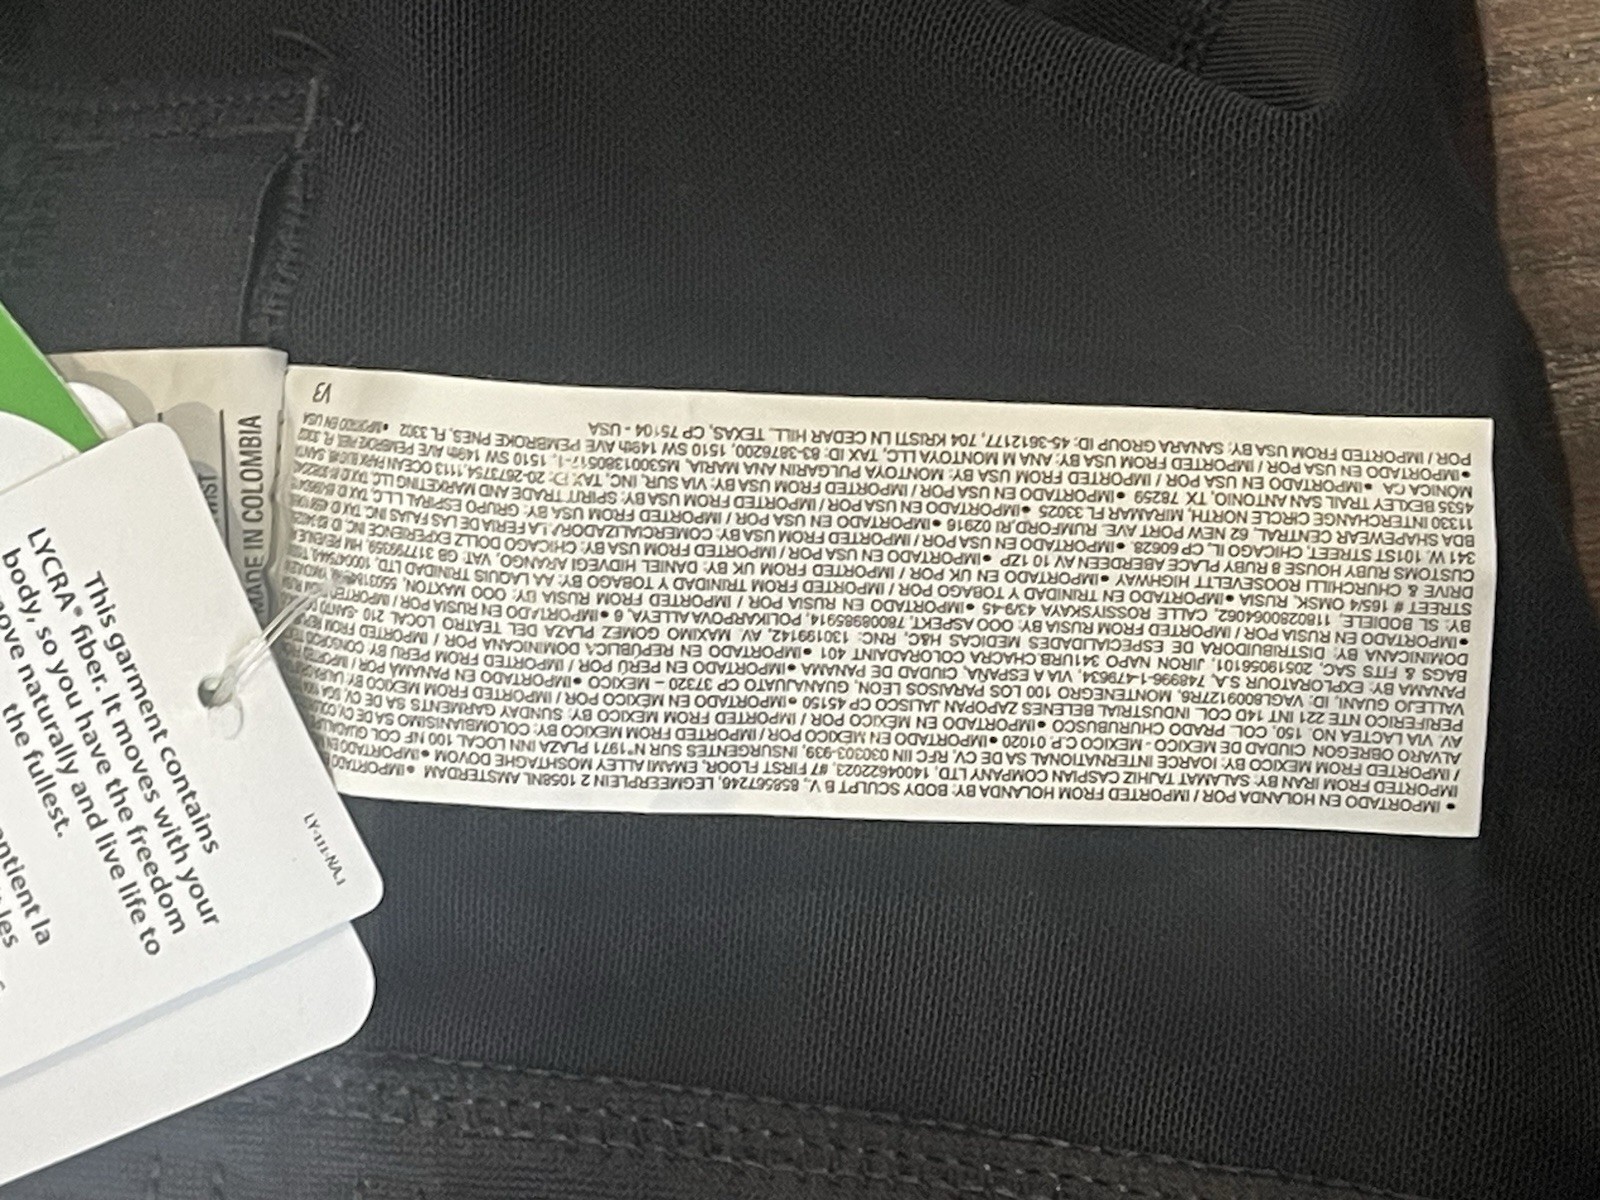 • IMPORTADO EN HOLANDA POR / IMPORTED FROM HOLANDA BY: BODY SCULPT B.V., 858567246, LEGMEERPLEIN 2 1058NL AMSTERDAM • IMPORTADO
IMPORTED FROM IRAN BY: SALAMAT TAJHIZ CASPIAN COMPANY LTD, 14004622023, #7 FIRST FLOOR, EMAMI ALLEY MOSHTAGHE DOVOM • IMPORTADO EN
/ IMPORTED FROM MEXICO BY: IOARCE INTERNATIONAL SA DE CV, RFC IIN 030303-939, INSURGENTES SUR N°1971 PLAZA INN LOCAL 100 NF COL
ALVARO OBREGON CIUDAD DE MEXICO - MEXICO C.P. 01020 • IMPORTADO EN MEXICO POR / IMPORTED FROM MEXICO BY: COLOMBIANISIMO SA DE CV,
AV. VIA LACTEA NO. 150. COL. PRADO CHURUBUSCO • IMPORTADO EN MEXICO POR / IMPORTED FROM MEXICO BY: SUNDAY GARMENTS SA DE CV,
PERIFERICO NTE 221 INT 14D COL. INDUSTRIAL BELENES ZAPOPAN JALISCO CP 45150 • IMPORTADO EN MEXICO POR / IMPORTED FROM MEXICO BY:
VALLEJO GUANI, ID: MONTENEGRO 100 LOS PARAISOS LEON, GUANAJUATO CP 37320 – MEXICO • IMPORTADO EN PANAMA POR /
PANAMA BY: EXPLORATOUR S.A, 748996-1-479634, VIA ESPAÑA, CIUDAD DE PANAMA • IMPORTADO EN PERÚ POR / IMPORTED FROM PERU BY:
BAGS & FITS SAC, 20519056101, JIRON NAPO 341URB.CHACRA COLORADAINT 401 • IMPORTADO EN REPÚBLICA DOMINICANA POR / IMPORTED FROM
DOMINICANA BY: DISTRIBUIDORA DE ESPECIALIDADES MEDICAS, H&C, RNC: 130199142, AV. MAXIMO GOMEZ PLAZA DEL TEATRO LOCAL 210
• IMPORTADO EN RUSIA POR / IMPORTED FROM RUSIA BY: OOO ASPEKT, 7800898591, POLIKARPOVA ALLEYA, 6 • IMPORTADO EN RUSIA POR /
BY: SL. BODIELE, 1180280064062, CALLE ROSSIYSKAYA 43/9-45 • IMPORTADO EN RUSIA POR / IMPORTED FROM RUSIA BY: OOO MAXTON,
STREET # 165/4 OMSK, RUSIA • IMPORTADO EN TRINIDAD Y TOBAGO POR / IMPORTED FROM TRINIDAD Y TOBAGO BY: AA LAQUIS TRINIDAD LTD,
DRIVE & CHURCHILL ROOSEVELTT HIGHWAY • IMPORTADO EN UK POR / IMPORTED FROM UK BY: DANIEL HIDVEGI ARANGO, VAT: GB 317799359,
CUSTOMS RUBY HOUSE 8 RUBY PLACE ABERDEEN AV 10 1ZP • IMPORTADO EN USA POR / IMPORTED FROM USA BY: CHICAGO DOLLZ EXPERIENCE INC,
341 W. 101ST STREET, CHICAGO IL, CP 60628 • IMPORTADO EN USA POR / IMPORTED FROM USA BY: COMERCIALIZADORA LA FERIA DE LAS FAJAS INC,
BDA SHAPEWEAR CENTRAL, 62 NEW PORT AVE. RUMFORD.RI 02916 • IMPORTADO EN USA POR / IMPORTED FROM USA BY: GRUPO ESPIRAL LLC,
11330 INTERCHANGE CIRCLE NORTH, MIRAMAR FL 33025 • IMPORTADO EN USA POR / IMPORTED FROM USA BY: SPIRIT TRADE AND MARKETING LLC,
4535 BEXLEY TRAIL SAN ANTONIO, TX 78259 • IMPORTADO EN USA POR / IMPORTED FROM USA BY: VIA SUR, INC, TAX ID: 20-2673754, 1113 OCEAN PARK
MÓNICA CA • IMPORTADO EN USA POR / IMPORTED FROM USA BY: MONTOYA PULGARIN ANA MARIA, MS3001380517-1, 1510 SW 149th AVE PEMBROKE
• IMPORTADO EN USA POR / IMPORTED FROM USA BY: ANA M MONTOYA LLC, TAX ID: 83-3876200, 1510 SW 149th AVE PEMBROKE PNES, FL 3302 • IMPORTADO EN USA
POR / IMPORTED FROM USA BY: SANARA GROUP ID: 45-3612177, 704 KRISTI LN CEDAR HILL. TEXAS, CP 75104 - USA
V3
MADE IN COLOMBIA
This garment contains
LYCRA® fiber. It moves with your
body, so you have the freedom
move naturally and live life to
the fullest.
LY-111-NA.1